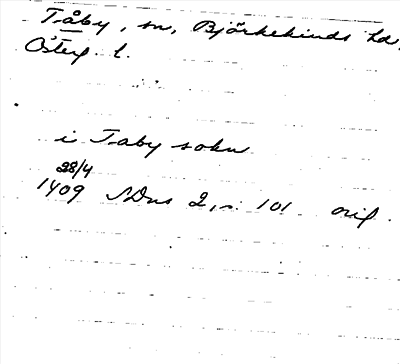 Tåby, sn, Björkekinds hd,
Österg. l.
i Taby sokn
28/4
1409 SDns 2, s. 101 orig.